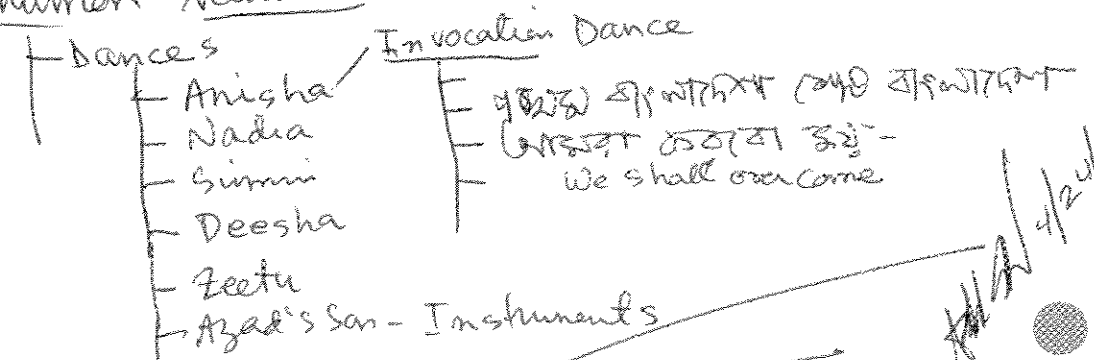 Dances
Invocation Dance
Anisha
Nadia
Simmi
Deesha
Zeetu
Azad's Son - Instruments
বাংলাদেশ বাংলাদেশ
আমরা করবো জয় -
We shall overcome